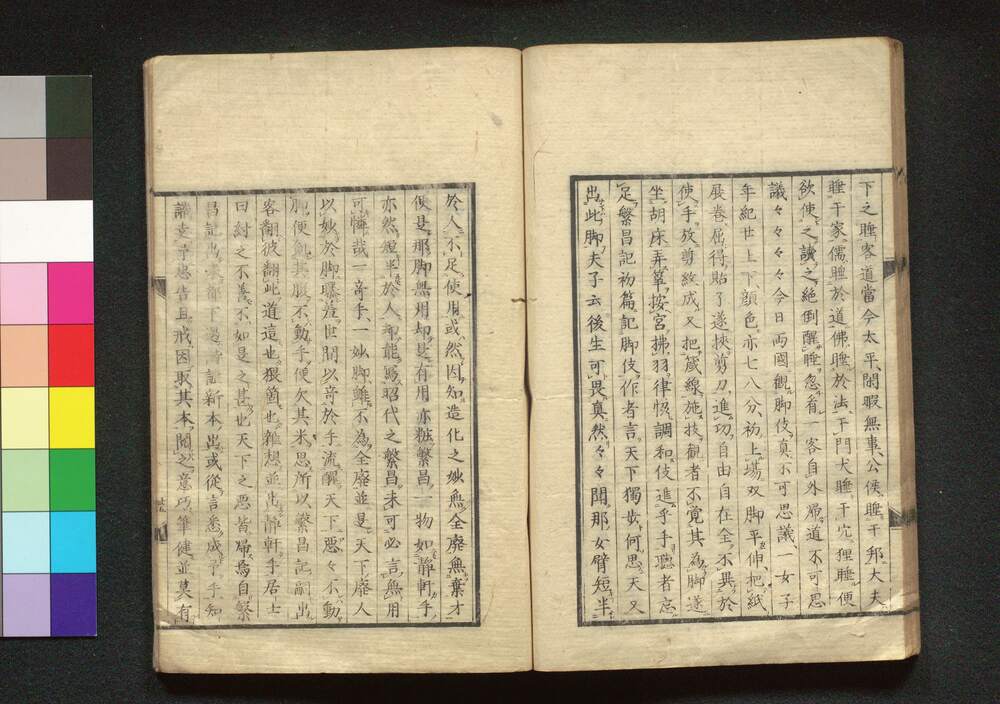 下之睡客道當今太平閒暇無事公侯睡干邦大夫
睡干家儒睡於道佛睡於法干門犬睡干穴狸睡便
欲使之讀之絕倒醒睡忽看一客自外帰道不可思
議々々々々今日両國觀脚伎真不可思議一女子
年紀廿上下顔色亦七八分初上場双脚平伸把紙
展巻屈得貼了遂挾剪刀進功自由自在全不異於
使手放剪紋成又把箴線施技観者不覚其為脚遂
坐胡床弄箏按宮拂羽律悩調和伎進乎手聴者忘
足繁昌記初篇記脚伎作者言天下獨歩何思天又
出此脚夫子云後生可畏真然々々聞那女臂短半
於人不足使用或然因知造化之妙無全廃無棄才
便是那脚無用却是有用亦粧繁昌一物如靜軒手
亦然短半於人却能寫昭代之繁昌未可必言無用
可憐哉一奇手一妙脚雖不為全廃並是天下廃人
以妙於脚曝羞世間以奇於手流醜天下悪々不動
脚便飢其腹不動手便欠其米思所以繁昌記嗣出
客翻彼翻此道這也猥箇也雑想並出靜軒手居士
曰討之不善不如是之甚也天下之悪皆帰焉自繁
昌記出
新本出或從言為成
手知
告且戒因取其本閲之意巧筆健並莫有